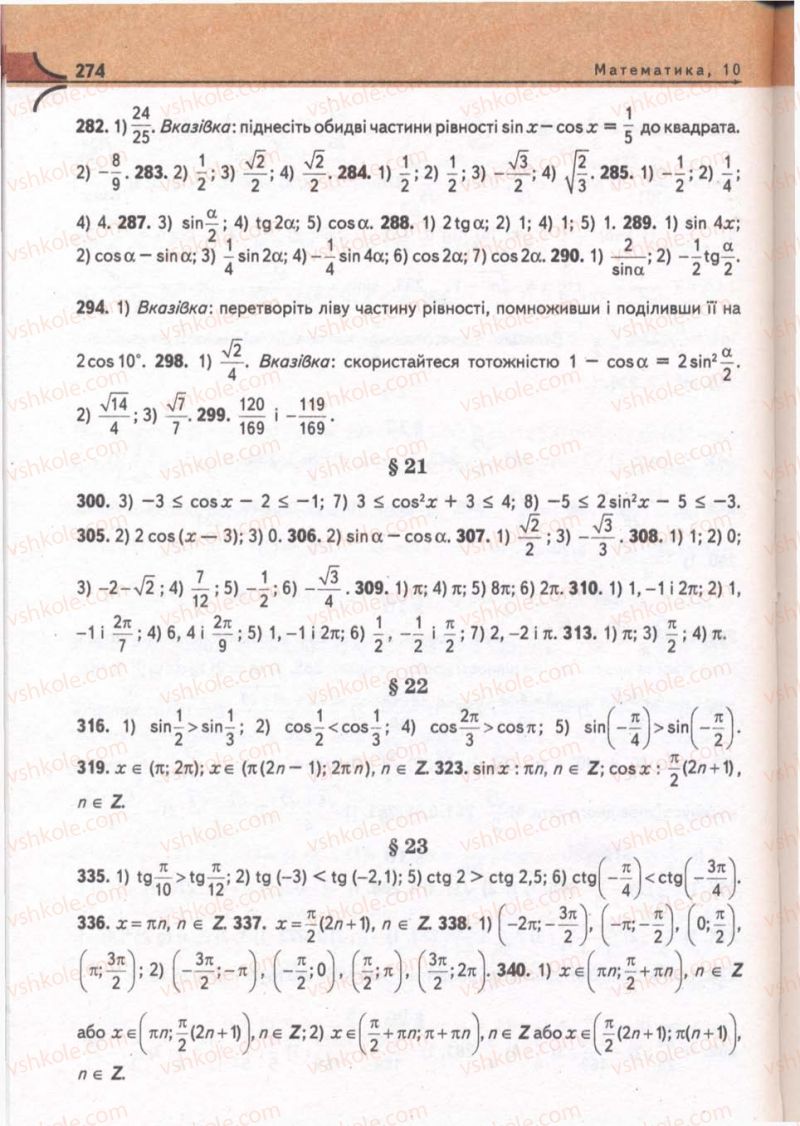 274
Математика, 10
282. 1) 24/25. Вказівка: піднесіть обидві частини рівності sin x − cos x = 1/5 до квадрата.
2) −8/9. 283. 2) 1/2; 3) √2/2; 4) √2/2. 284. 1) 1/2; 2) 1/2; 3) −√3/2; 4) √(2/3). 285. 1) −1/2; 2) 1/4;
4) 4. 287. 3) sin α/2; 4) tg 2α; 5) cos α. 288. 1) 2 tg α; 2) 1; 4) 1; 5) 1. 289. 1) sin 4x;
2) cos α − sin α; 3) 1/4 sin 2α; 4) −1/4 sin 4α; 6) cos 2α; 7) cos 2α. 290. 1) 2/sin α; 2) −1/2 tg α/2.
294. 1) Вказівка: перетворіть ліву частину рівності, помноживши і поділивши її на
2cos 10°. 298. 1) √2/4. Вказівка: скористайтеся тотожністю 1 − cos α = 2 sin² α/2.
2) √14/4; 3) √7/7. 299. 120/169 і −119/169.
§ 21
300. 3) −3 ≤ cos x − 2 ≤ −1; 7) 3 ≤ cos²x + 3 ≤ 4; 8) −5 ≤ 2 sin²x − 5 ≤ −3.
305. 2) 2 cos (x − 3); 3) 0. 306. 2) sin α − cos α. 307. 1) √2/2; 3) −√3/3. 308. 1) 1; 2) 0;
3) −2−√2; 4) 7/12; 5) −1/2; 6) −√3/4. 309. 1) π; 4) π; 5) 8π; 6) 2π. 310. 1) 1, −1 і 2π; 2) 1,
−1 і 2π/7; 4) 6, 4 і 2π/9; 5) 1, −1 і 2π; 6) 1/2, −1/2 і π/2; 7) 2, −2 і π. 313. 1) π; 3) π/2; 4) π.
§ 22
316. 1) sin 1/2 > sin 1/3; 2) cos 1/2 < cos 1/3; 4) cos 2π/3 > cos π; 5) sin(−π/4) > sin(−π/2).
319. x ∈ (π; 2π); x ∈ (π(2n − 1); 2πn), n ∈ Z. 323. sin x : πn, n ∈ Z; cos x : π/2(2n + 1),
n ∈ Z.
§ 23
335. 1) tg π/10 > tg π/12; 2) tg (−3) < tg (−2,1); 5) ctg 2 > ctg 2,5; 6) ctg(−π/4) < ctg(−3π/4).
336. x = πn, n ∈ Z. 337. x = π/2(2n + 1), n ∈ Z. 338. 1) (−2π; −3π/2), (−π; −π/2), (0; π/2),
(π; 3π/2); 2) (−3π/2; −π), (−π/2; 0), (π/2; π), (3π/2; 2π). 340. 1) x ∈ (πn; π/2 + πn), n ∈ Z
або x ∈ (πn; π/2(2n + 1)), n ∈ Z; 2) x ∈ (π/2 + πn; π + πn), n ∈ Z або x ∈ (π/2(2n + 1); π(n + 1)),
n ∈ Z.
vshkole.com